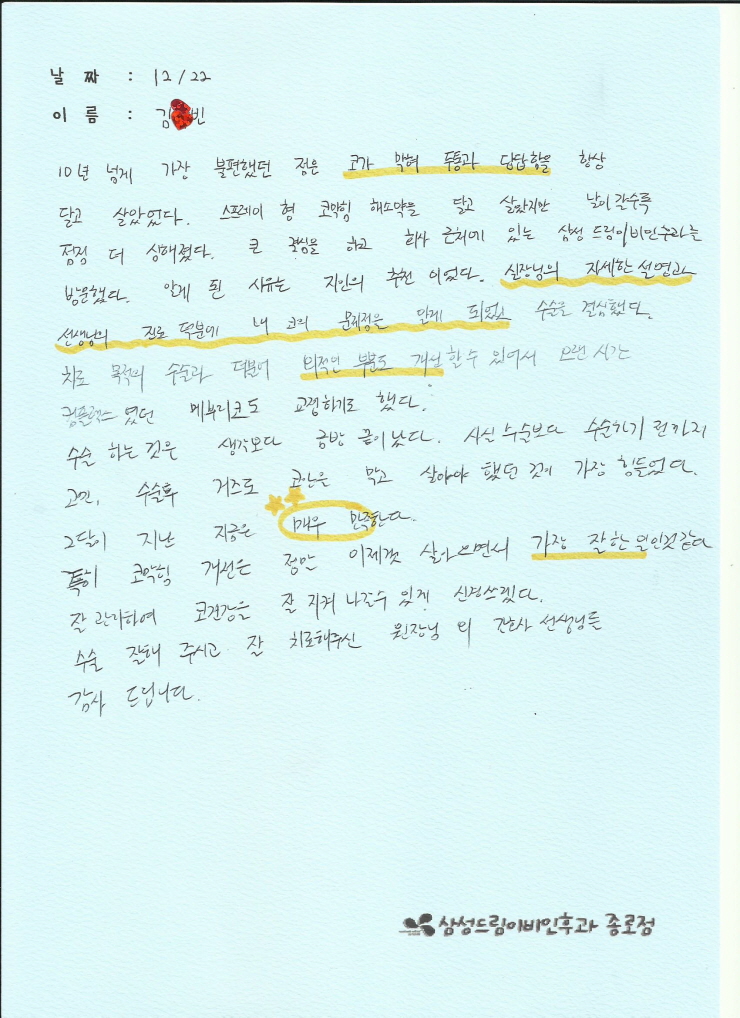 날 짜 : 12/22
이 름 : 김 빈
10년 넘게 가장 불편했던 점은 코가 막혀 두통과 답답함을 항상
달고 살았었다. 스프레이 형 코막힘 해소약을 달고 살았지만 날이갈수록
점점 더 심해졌다. 큰 결심을 하고 회사 근처에 있는 삼성 드림이비인후과를
방문했다. 알게 된 사유는 지인의 추천 이었다. 실장님의 자세한 설명과
선생님의 진료 덕분에 내 코의 문제점을 알게 되었고 수술을 결심했다.
치료 목적의 수술과 더불어 외적인 부분도 개선할 수 있어서 오랜 시간
컴플렉스 였던 매부리코도 교정하기로 했다.
수술 하는 것은 생각보다 금방 끝이 났다. 사실 수술보다 수술하기 전까지
고민, 수술후 거즈로 코안은 막고 살아야 했던 것이 가장 힘들었다.
2달이 지난 지금은 매우 만족한다.
특히 코막힘 개선은 정말 이제껏 살아오면서 가장 잘한 일인것 같다
잘 관리하여 코건강을 잘 지켜 나갈수 있게 신경쓰겠다.
수술 잘해 주시고 잘 치료해주신 원장님 외 간호사 선생님들
감사 드립니다.
삼성드림이비인후과 종로점